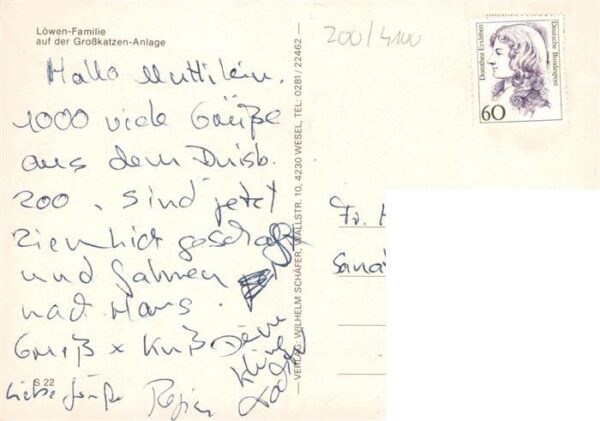 Löwen-Familie
auf der Großkatzen-Anlage
200/4100
Hallo Muttilein.
1000 viele Grüße
aus dem Duisb.
Zoo. Sind jetzt
ziemlich geschafft
und fahren
nach Haus.
Gruß x Kuß Deine
kleine
Liebe Grüße
S 22
VERLAG: WILHELM SCHÄFER, WALLSTR. 10, 4230 WESEL, TEL: 0281/22462
Dorothea Erxleben
Deutsche Bundespost
60
Fr.